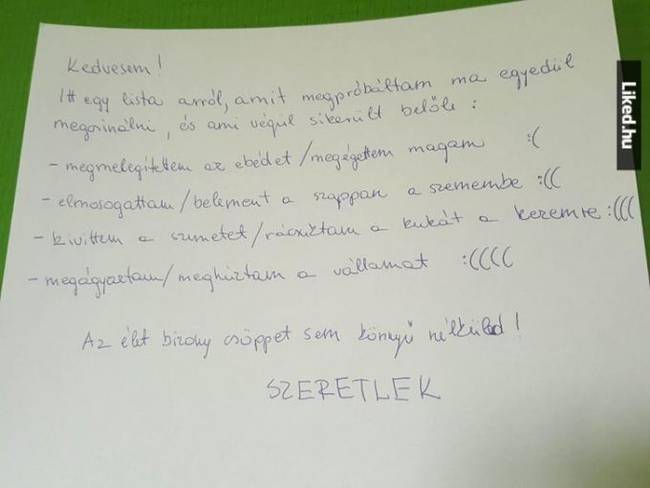 Kedvesem!
Itt egy lista arról, amit megpróbáltam ma egyedül
megcsinálni, és ami végül sikerült belőle:
- megmelegítettem az ebédet/megégettem magam :(
- elmosogattam/belement a szappan a szemembe :((
- kivittem a szemetet/rácsuktam a kukát a kezemre :(((
- megágyaztam/meghúztam a vállamat :((((
Az élet bizony csöppet sem könnyű nélküled!
SZERETLEK
Liked.hu